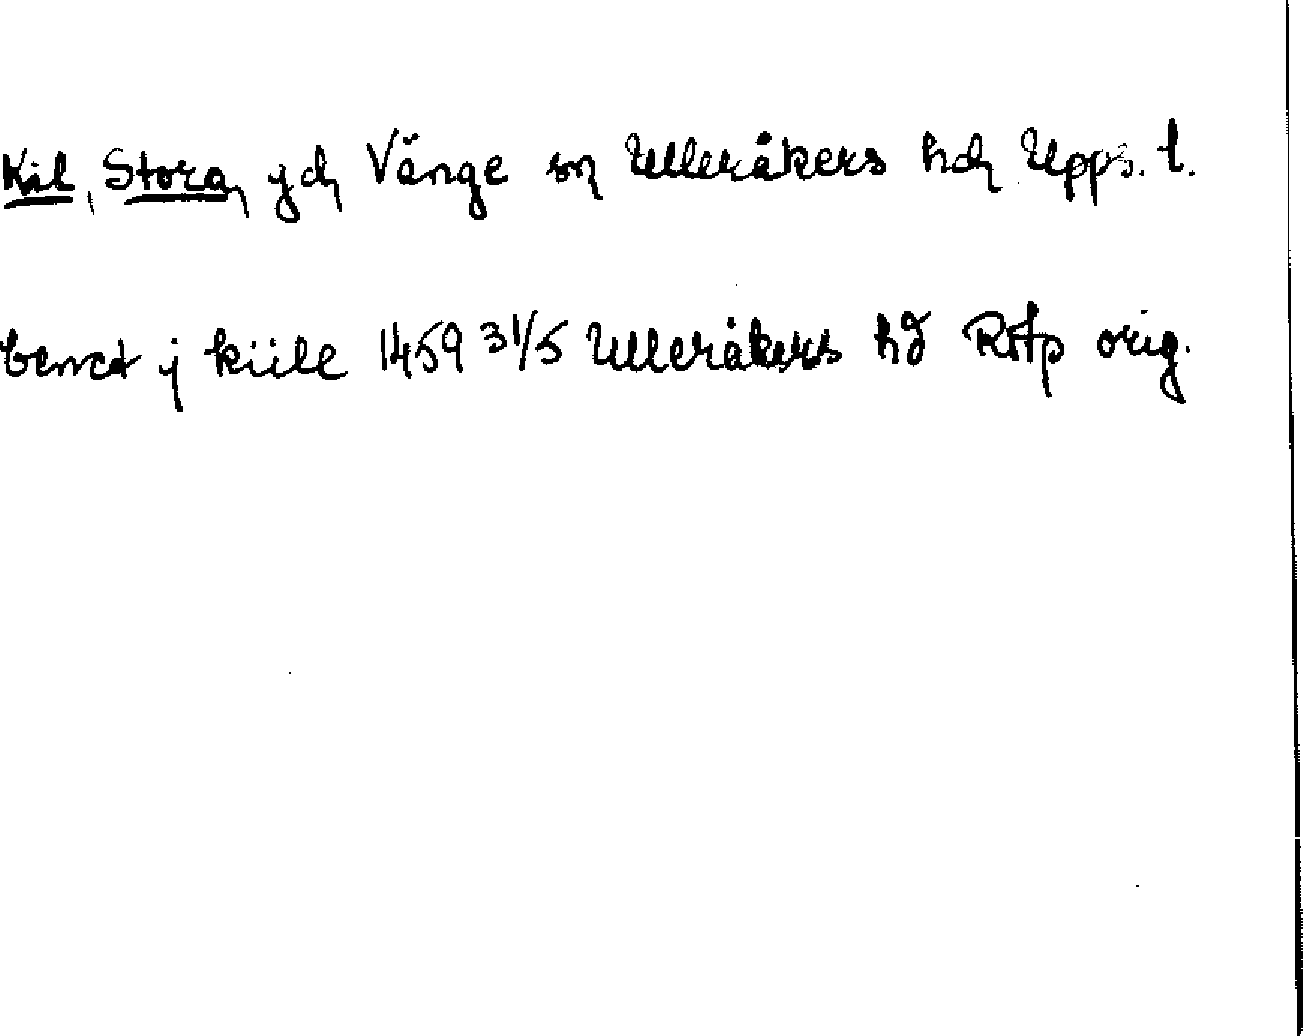 Kil, Stora, gdh Vänge sn Ulleråkers hdh Upps. l.
benct ij kiile 1459 31/5 Ulleråkers hd RAp orig.